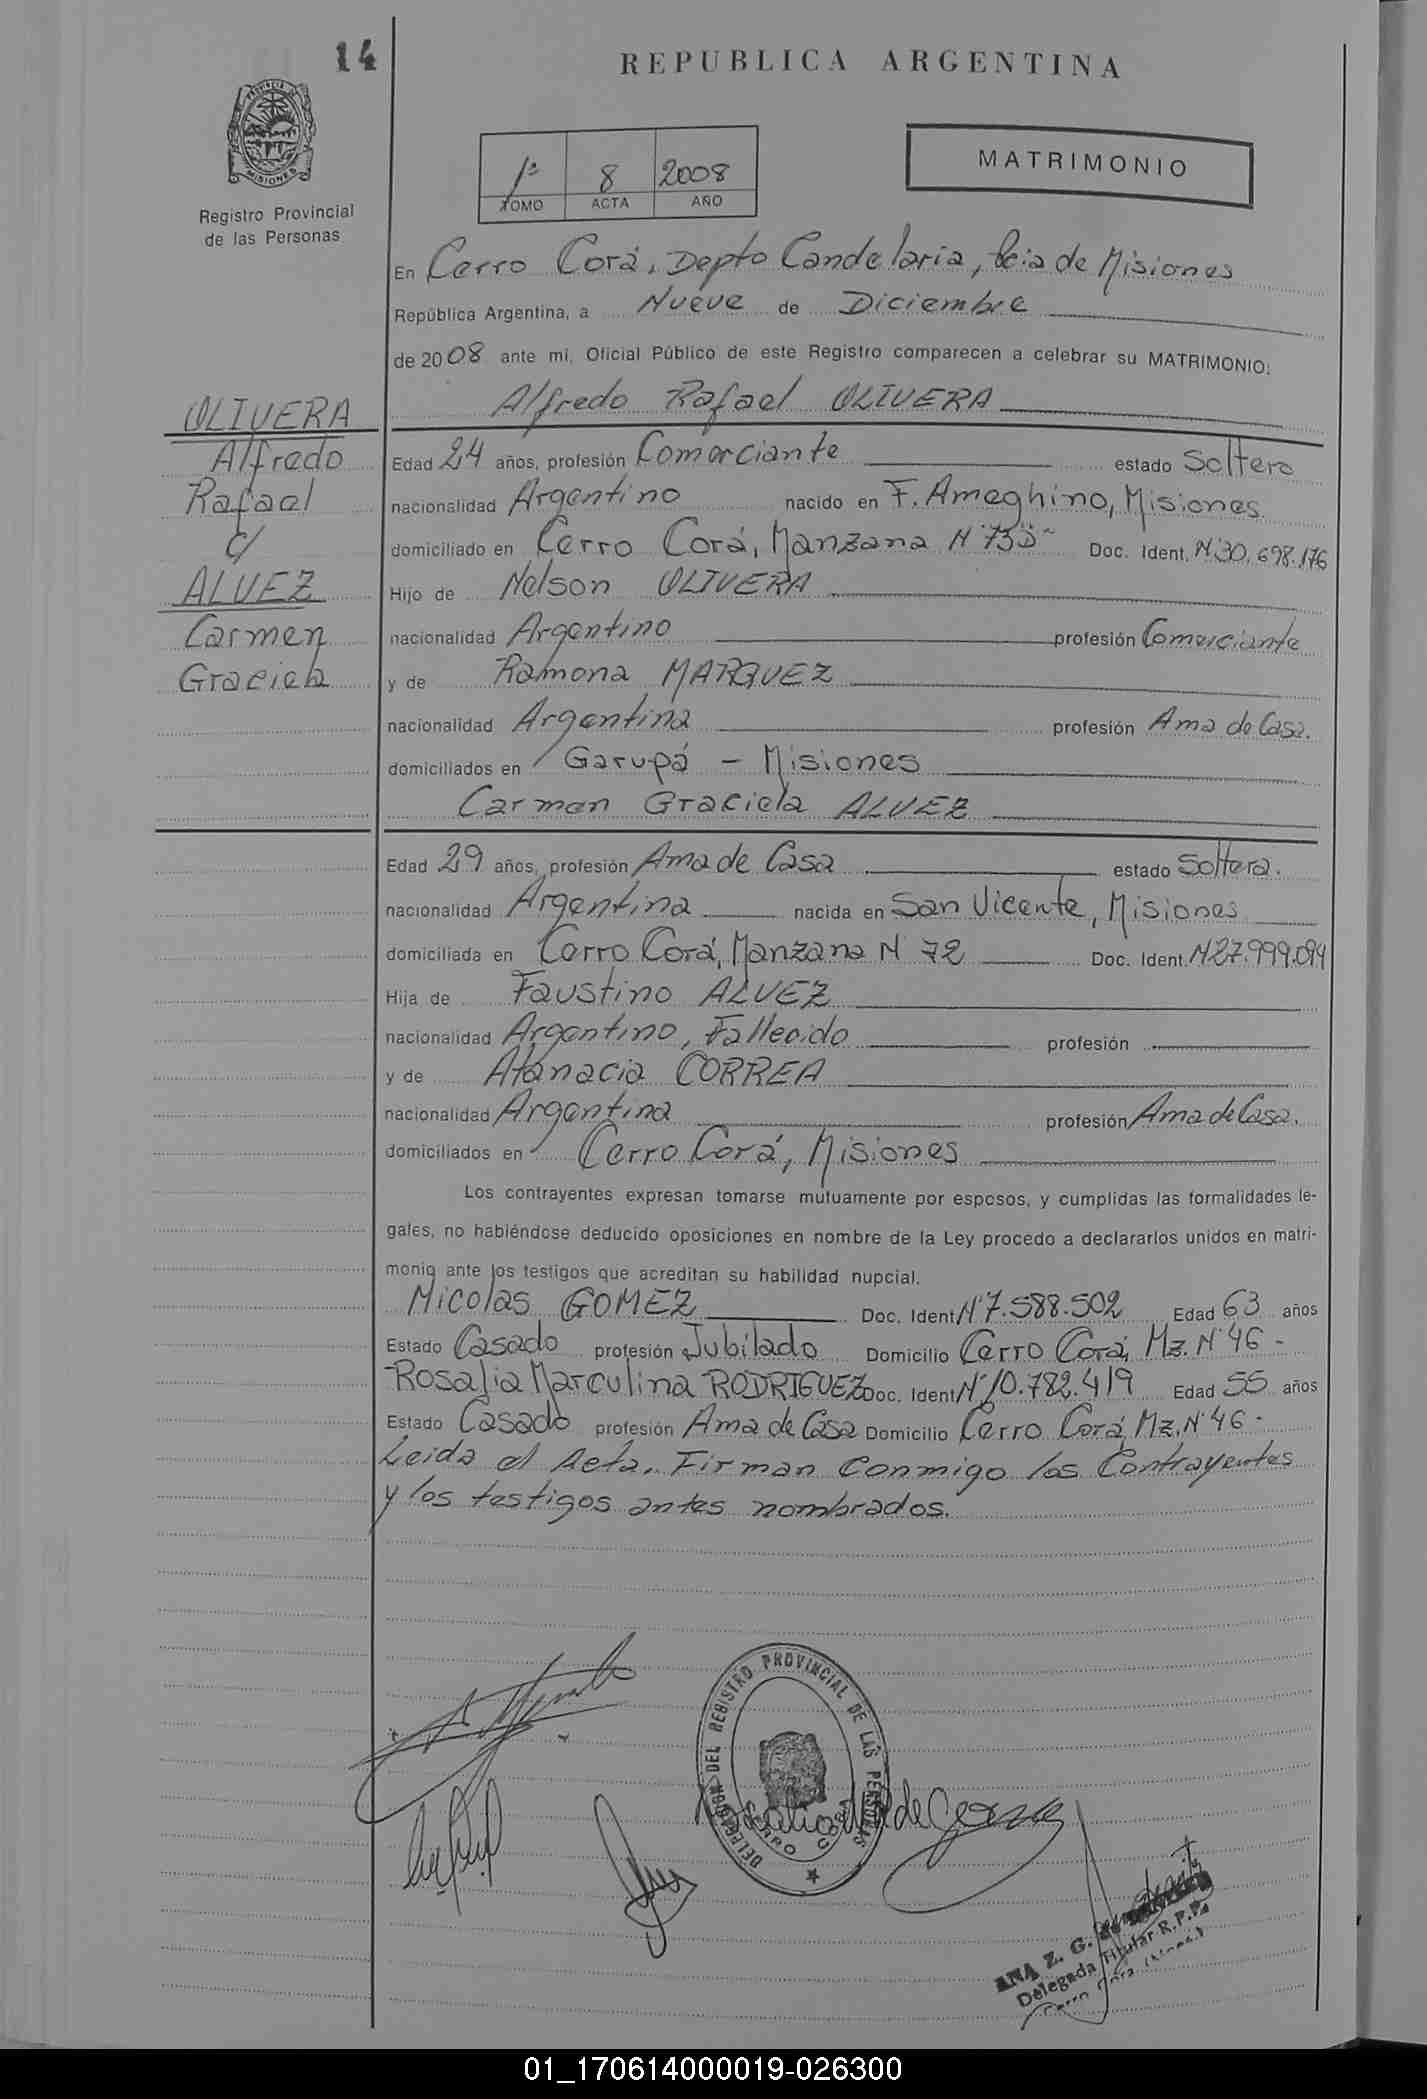 14
REPUBLICA ARGENTINA
PROVINCIA DE
MISIONES
Registro Provincial
de las Personas
1º 8 2008
TOMO ACTA AÑO
MATRIMONIO
En Cerro Corá, Depto Candelaria, Pcia de Misiones
República Argentina, a Nueve de Diciembre
de 2008 ante mi, Oficial Público de este Registro comparecen a celebrar su MATRIMONIO:
Alfredo Rafael OLIVERA
OLIVERA
Alfredo
Rafael
c/
ALVEZ
Carmen
Graciela
Edad 24 años, profesión Comerciante estado Soltero
nacionalidad Argentino nacido en F. Ameghino, Misiones
domiciliado en Cerro Corá, Manzana Nº 73 "D" Doc. Ident. Nº 30.698.176
Hijo de Nelson OLIVERA
nacionalidad Argentino profesión Comerciante
y de Ramona MARQUEZ
nacionalidad Argentina profesión Ama de Casa.
domiciliados en Garupá - Misiones
Carmen Graciela ALVEZ
Edad 29 años, profesión Ama de Casa estado Soltera.
nacionalidad Argentina nacida en San Vicente, Misiones
domiciliada en Cerro Corá, Manzana Nº 72 Doc. Ident. Nº 27.999.094
Hija de Faustino ALVEZ
nacionalidad Argentino, Fallecido profesión
y de Atanacia CORREA
nacionalidad Argentina profesión Ama de Casa.
domiciliados en Cerro Corá, Misiones
Los contrayentes expresan tomarse mutuamente por esposos, y cumplidas las formalidades le-
gales, no habiéndose deducido oposiciones en nombre de la Ley procedo a declararlos unidos en matri-
monio ante los testigos que acreditan su habilidad nupcial.
Nicolas GOMEZ Doc. Ident. Nº 7.588.502 Edad 63 años
Estado Casado profesión Jubilado Domicilio Cerro Corá, Mz. Nº 46 -
Rosalia Marculina RODRIGUEZ Doc. Ident. Nº 10.782.419 Edad 55 años
Estado Casado profesión Ama de Casa Domicilio Cerro Corá, Mz. Nº 46 -
Leida el Acta, Firman conmigo los Contrayentes
y los testigos antes nombrados.
DELEGACION DEL REGISTRO PROVINCIAL DE LAS PERSONAS
CERRO CORA
Rosalia R de Gomez
ANA Z. G.
Delegada Titular R.P.P.
Cerro Cora (Mnes.)
01_170614000019-026300